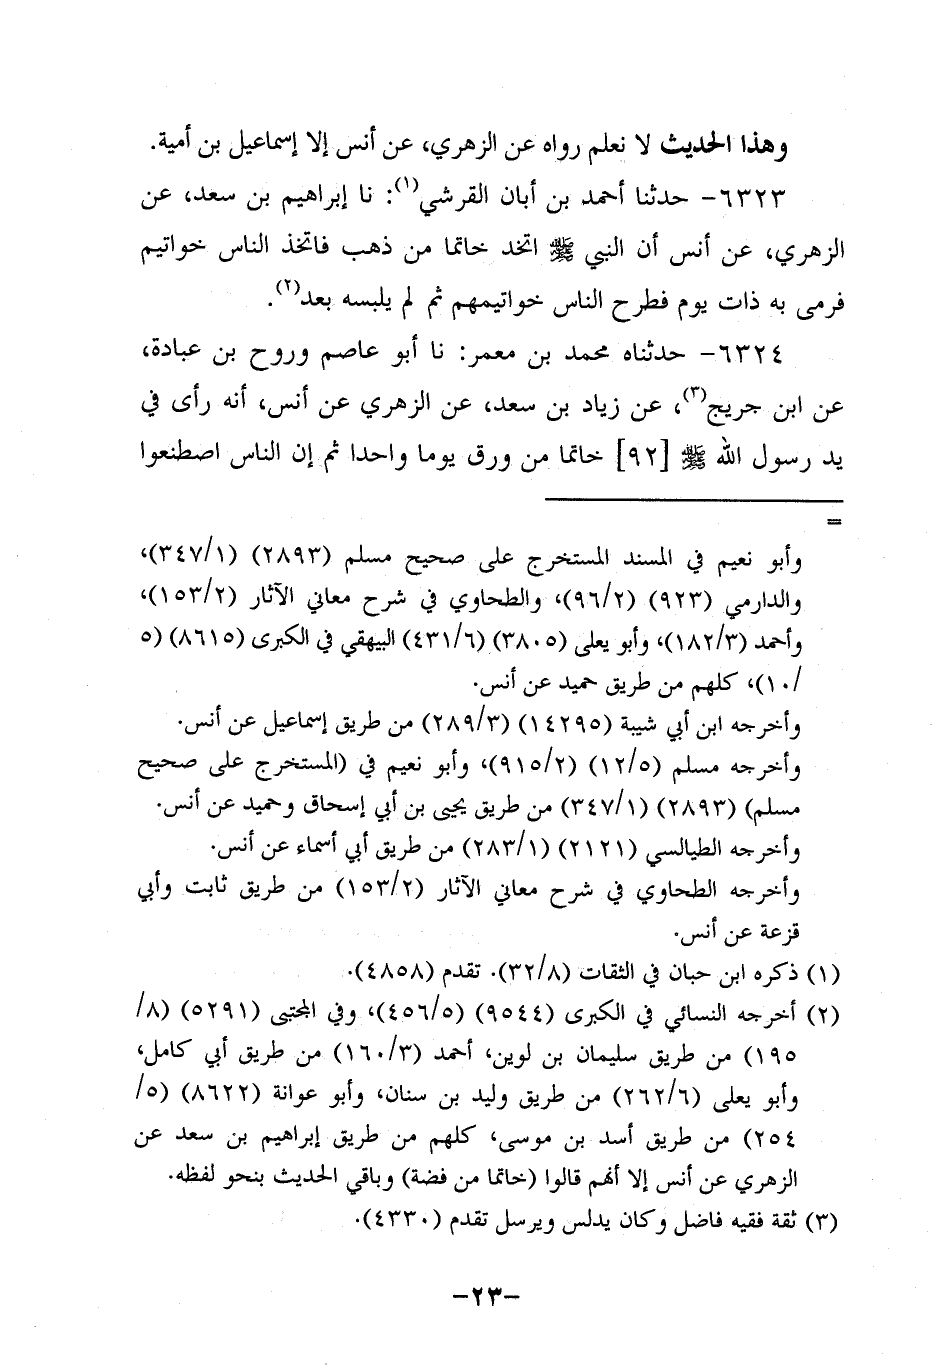 وهذا الحديث لا نعلم رواه عن الزهري، عن أنس إلا إسماعيل بن أمية.
٦٣٢٣- حدثنا أحمد بن أبان القرشي(١): نا إبراهيم بن سعد، عن
الزهري، عن أنس أن النبي ﷺ اتخد خاتما من ذهب فاتخذ الناس خواتيم
فرمى به ذات يوم فطرح الناس خواتيمهم ثم لم يلبسه بعد(٢).
٦٣٢٤- حدثناه محمد بن معمر: نا أبو عاصم وروح بن عبادة،
عن ابن جريج(٣)، عن زياد بن سعد، عن الزهري عن أنس، أنه رأى في
يد رسول الله ﷺ [٩٢] خاتما من ورق يوما واحدا ثم إن الناس اصطنعوا
=
وأبو نعيم في المسند المستخرج على صحيح مسلم (٢٨٩٣) (٣٤٧/١)،
والدارمي (٩٢٣) (٩٦/٢)، والطحاوي في شرح معاني الآثار (١٥٣/٢)،
وأحمد (١٨٢/٣)، وأبو يعلى (٣٨٠٥) (٤٣١/٦) البيهقي في الكبرى (٨٦١٥) (٥
/١٠)، كلهم من طريق حميد عن أنس.
وأخرجه ابن أبي شيبة (١٤٢٩٥) (٢٨٩/٣) من طريق إسماعيل عن أنس.
وأخرجه مسلم (١٢/٥) (٩١٥/٢)، وأبو نعيم في (المستخرج على صحيح
مسلم) (٢٨٩٣) (٣٤٧/١) من طريق يحيى بن أبي إسحاق وحميد عن أنس.
وأخرجه الطيالسي (٢١٢١) (٢٨٣/١) من طريق أبي أسماء عن أنس.
وأخرجه الطحاوي في شرح معاني الآثار (١٥٣/٢) من طريق ثابت وأبي
قزعة عن أنس.
(١) ذكره ابن حبان في الثقات (٣٢/٨). تقدم (٤٨٥٨).
(٢) أخرجه النسائي في الكبرى (٩٥٤٤) (٤٥٦/٥)، وفي المجتبى (٥٢٩١) (٨/
١٩٥) من طريق سليمان بن لوين، أحمد (١٦٠/٣) من طريق أبي كامل،
وأبو يعلى (٢٦٢/٦) من طريق وليد بن سنان، وأبو عوانة (٨٦٢٢) (٥/
٢٥٤) من طريق أسد بن موسى، كلهم من طريق إبراهيم بن سعد عن
الزهري عن أنس إلا أنهم قالوا (خاتما من فضة) وباقي الحديث بنحو لفظه.
(٣) ثقة فقيه فاضل وكان يدلس ويرسل تقدم (٤٣٣٠).
-٢٣-